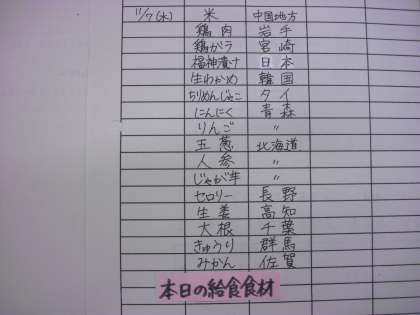 11/7(水) 米 中国地方
鶏肉 岩手
鶏ガラ 宮崎
福神漬け 日本
生わかめ 韓国
ちりめんじゃこ タイ
にんにく 青森
りんご 〃
玉葱 北海道
人参 〃
じゃが芋 〃
セロリー 長野
生姜 高知
大根 千葉
きゅうり 群馬
みかん 佐賀
本日の給食食材